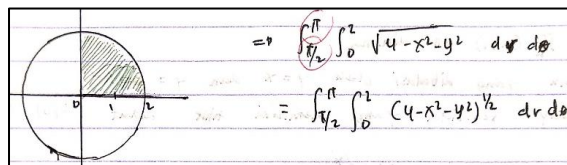 => ∫_{π/2}^{π} ∫_0^2 √(4-x²-y²) dr dθ
0 1 2
= ∫_{π/2}^{π} ∫_0^2 (4-x²-y²)^{1/2} dr dθ